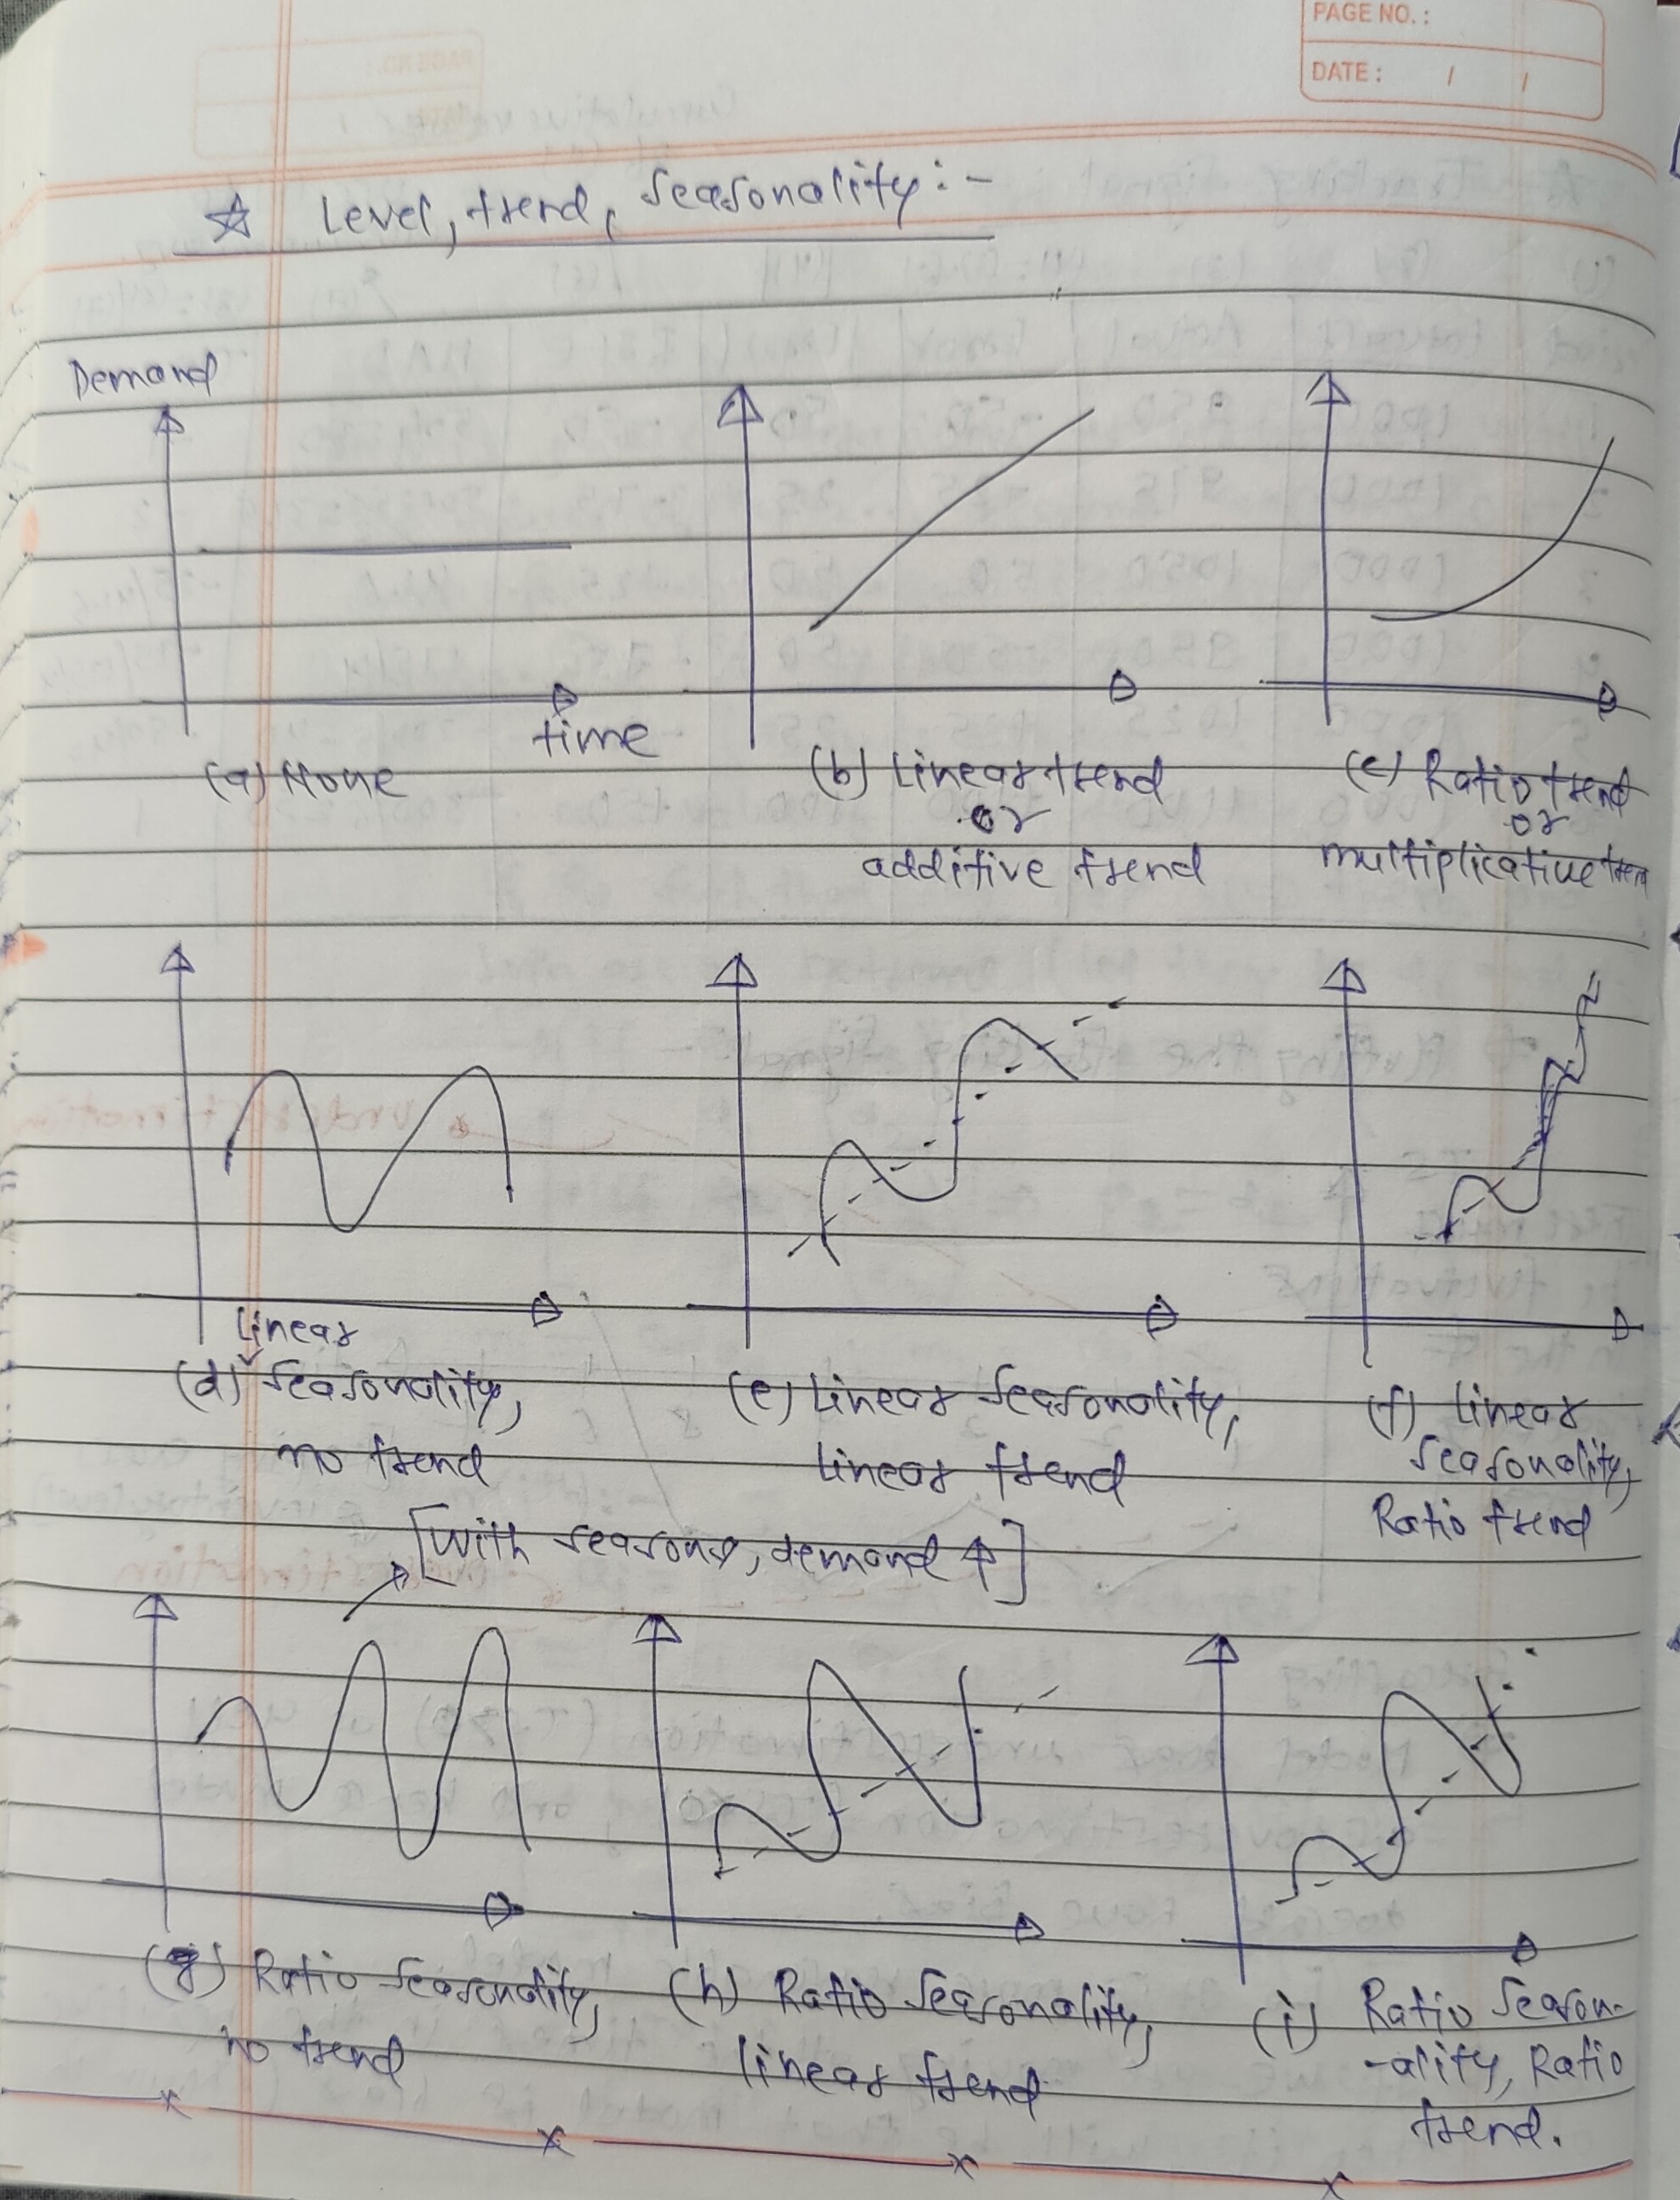 PAGE NO.:
DATE: / /
☆ Level, trend, seasonality:-
Demand
time
(a) None
(b) Linear trend
or
additive trend
(c) Ratio trend
or
multiplicative trend
Linear
(d) seasonality,
no trend
(e) Linear seasonality,
linear trend
(f) linear
seasonality,
Ratio trend
[With seasons, demand ↑]
(g) Ratio seasonality,
no trend
(h) Ratio seasonality,
linear trend
(i) Ratio season-
-ality, Ratio
trend.